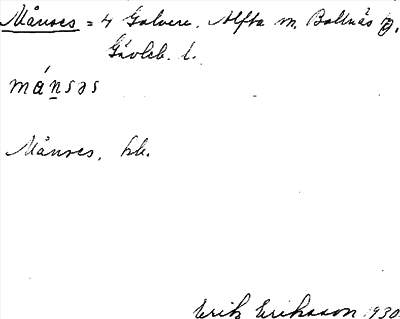 Månses = 4 Galvere. Alfta sn. Bollnäs
Gävleb. l.
mánsəs
Månses, hb.
Erik Eriksson 1930